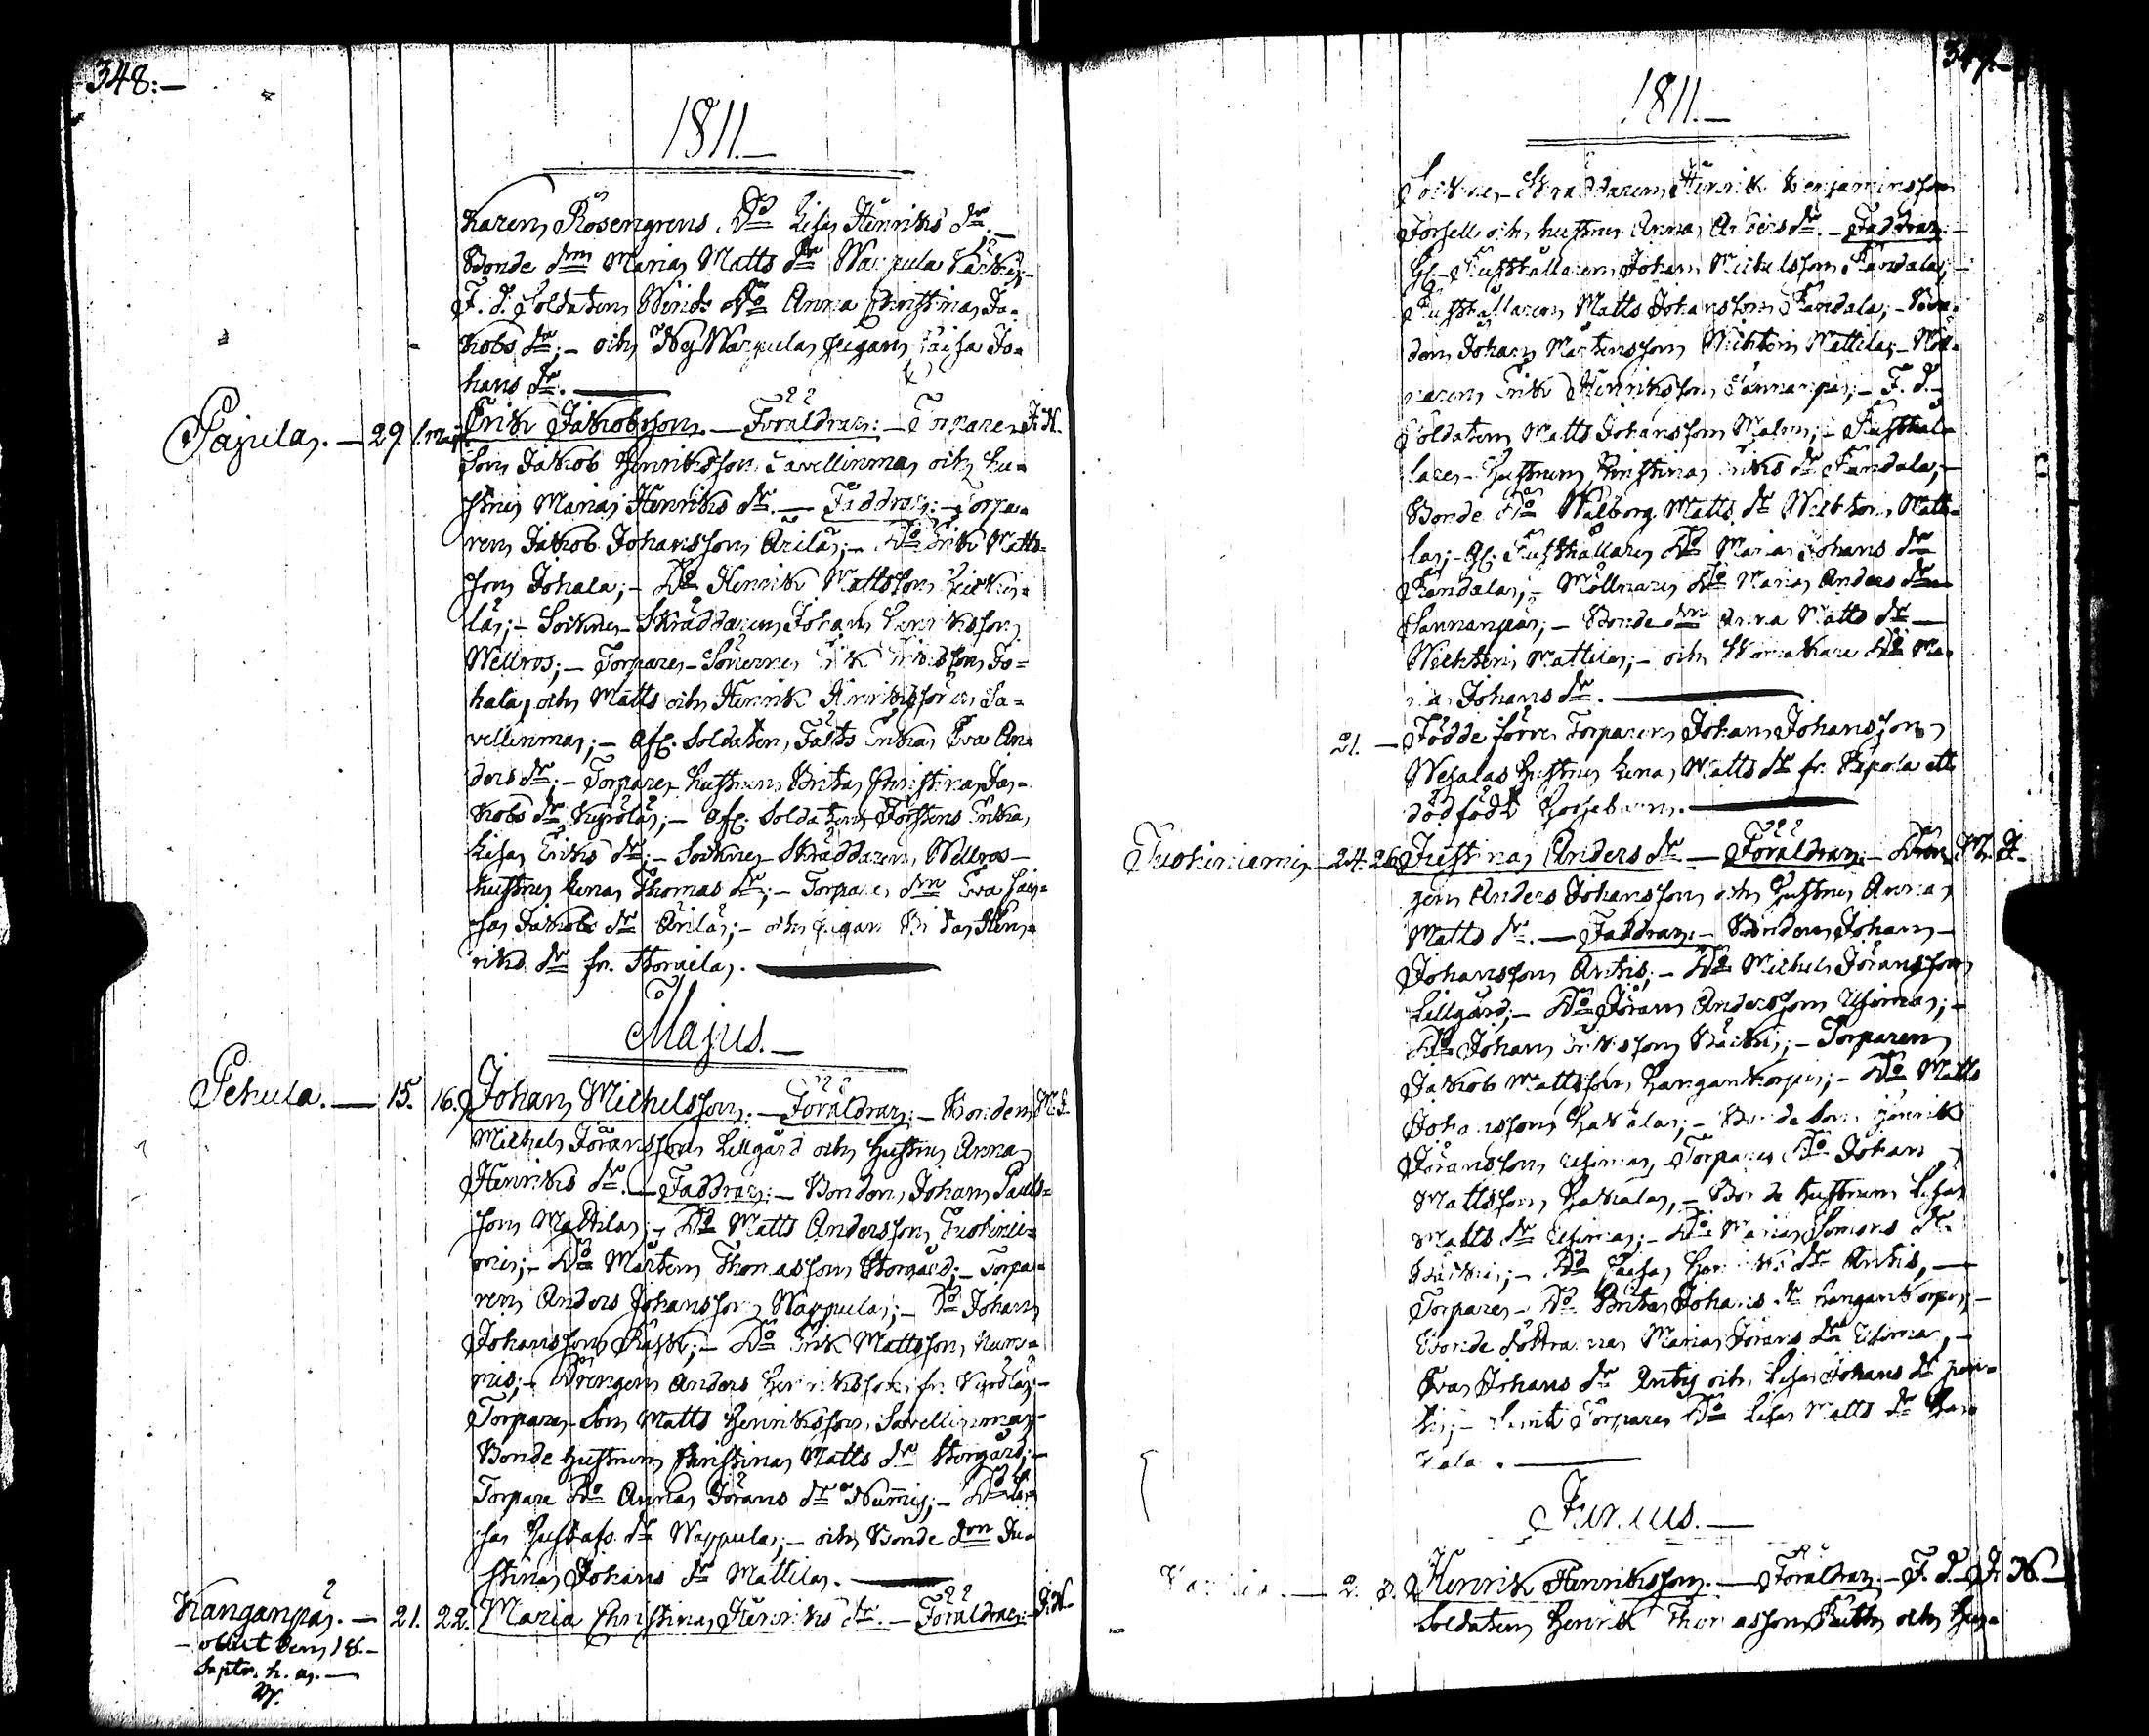 348:—
1811.—
karens Rosengrens Do Lisa Henriks dr.—
Bonde dm Maria Matts dr Wappula
F. d. Soldatens Do Anna Christina Ja-
kobs dr;— och Wappula pigan Caisa Jo-
hans dr.—
Pajula.— 29. 1. maji. Erik Jakobsson.— Föräldrar:— Torparen J. N.
Jakob Henriksson Savellinma och hu-
strun Maria Henriks dr.— Faddrar:— Torpa-
ren Jakob Johansson Ärilä;— Do Erik Matts-
son Johala;— Do Henrik Mattsson
lä;— Sockne-Skräddaren Johan Henriksson
Wellros;— Torpare-Sönerne Erik Eriksson Jo-
hala, och Matts och Henrik Henrikssöner Sa-
vellinma;— Afsk. Soldaten Enka Eva An-
ders dr;— Torpare hustrun Brita Christina Ja-
kobs dr Kyrölä;— Afsk. Soldatens Enka
Lisa Eriks dr;— Sockne-Skräddaren Wellros
hustru Lena Thomas dr;— Torpare dm Eva Cai-
sa Jakobs dr Ärilä;— och pigan Brita Hen-
riks dr fr. Storgela.—
Majus.—
Pehula.— 15. 16. Johan Michelsson.— Föräldrar:— Bonden M. L.
Michel Göransson Lillgård och hustru Anna
Henriks dr.— Faddrar:— Bonden Johan Pauls-
son Mattila;— Do Matts Andersson Tuokinie-
mis;— Do Mårten Thomasson Storgård;— Torpa-
ren Anders Johansson Wappula;— Do Johan
Johansson Rask;— Do Erik Mattsson Num-
mis;— Drengen Anders Henriksson fr. Kyrölä;—
Torpare-Son Matts Henriksson Savellinma;—
Bonde hustrun Christina Matts dr Storgård;—
Torpare Do Anna Görans dr Nummis;— Do Li-
sa Gustafs dr Wappula;— och Bonde dm Ju-
stina Johans dr Mattila.—
Kanganpä.— 21. 22. Maria Christina Henriks dr.— Föräldrar:— J. N.
— obiit den 18.—
Septr. h. a.—
1811.—
Sockne-Skräddaren Henrik Benjaminsson
Forsell och hustrun Anna Anders dr.— Faddrar:—
Rusthållaren Johan Michelsson Pandala;—
Rusthållaren Matts Johansson Pandala;— Bon-
den Johan Mårtensson Wichteri Mattila;— Möl-
naren Erik Henriksson Pannanpä;— F. d.
Soldaten Matts Johansson Malm;— Rusthål-
lare-Hustrun Christina Eriks dr Pandala;—
Bonde Do Walborg Matts dr Wichteri Matti-
la;— Rusthållare Do Maria Johans dr
Pandala;— Möllnare Do Maria Anders dr
Pannanpää;— Bonde dm Anna Matts dr—
Wichteri Mattila;— och Do Ma-
ria Johans dr.—
21.— Födde förre Torparen Johan Johansson
Wesalas hustru Lena Matts dr fr. Pepola ett
dödfödt Gossebarn.—
Tuokiniemis.— 24. 26. Justina Anders dr.— Föräldrar:— Dren- M. L.
gen Anders Johansson och hustru Anna
Matts dr.— Faddrar:— Bonden Johan
Johansson Antis;— Do Michel Göransson
Lillgård;— Do Göran Andersson Uhima;—
Do Johan Eriksson Bäcki;— Torparen
Jakob Mattsson Langankorpis;— Do Matts
Johansson Hakala;— Bonde Son Henrik
Göransson Uhima, Torpare Do Johan
Mattsson Hakala,— Bonde hustrun Lisa
Matts dr Uhima;— Do Maria Simons dr
Bäckis;— Do Caisa Henriks dr Antis,—
Torpare— Do Brita Johans dr Langankorpis;—
Bonde döttrarna Maria Görans dr Uhima,—
Eva Johans dr Antis och Lisa Johans dr
samt Torpare Do Lisa Matts dr Ha-
kala.—
Junius.—
2. 3. Henrik Henriksson.— Föräldrar:— F. d. J. N.—
Soldaten Henrik Thomasson och Hu-